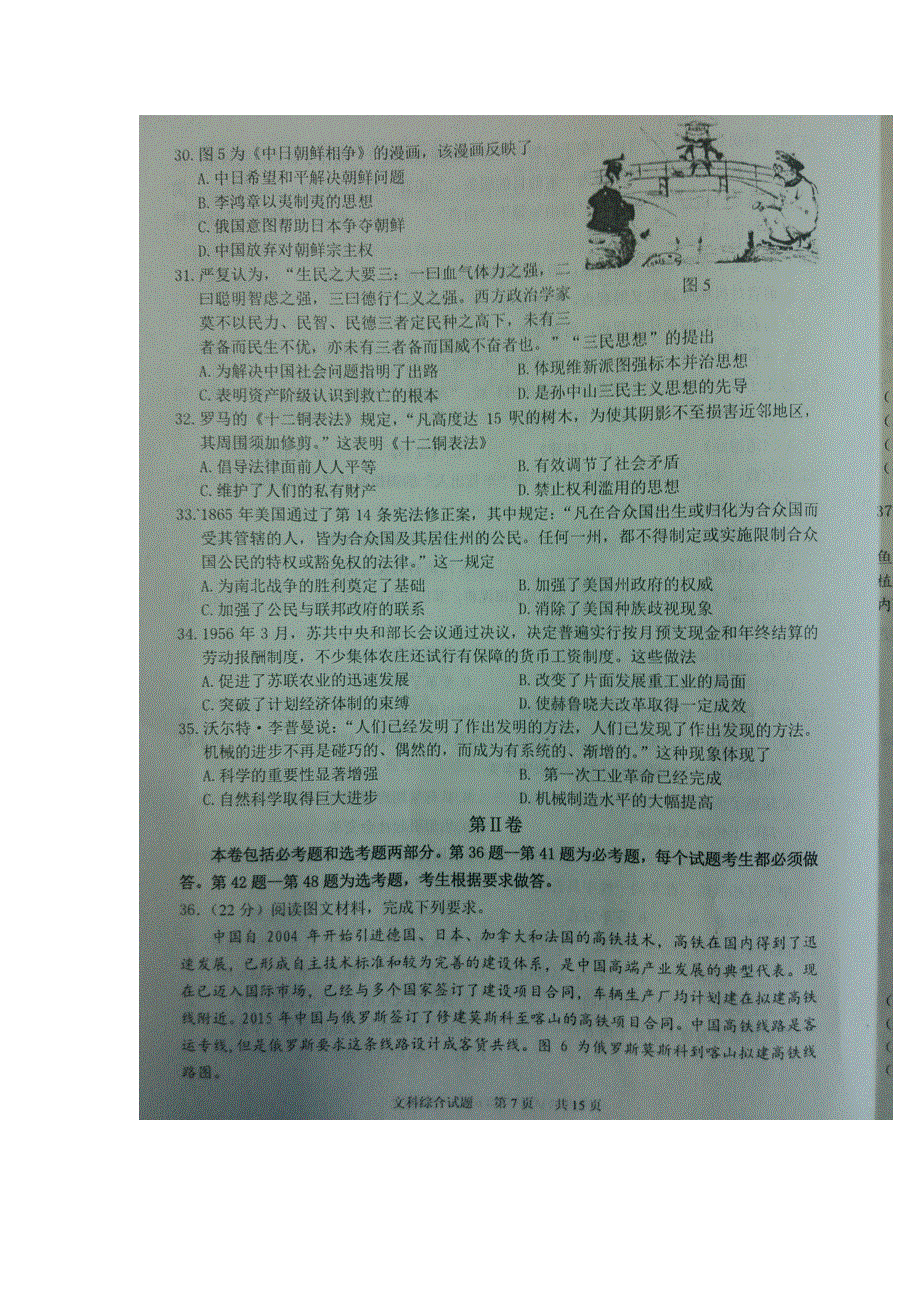 30.图5为《中日朝鲜相争》的漫画，该漫画反映了
A.中日希望和平解决朝鲜问题
B.李鸿章以夷制夷的思想
C.俄国意图帮助日本争夺朝鲜
D.中国放弃对朝鲜宗主权
图5
31.严复认为，“生民之大要三：一曰血气体力之强，二
曰聪明智虑之强，三曰德行仁义之强。西方政治学家
莫不以民力、民智、民德三者定民种之高下，未有三
者备而民生不优，亦未有三者备而国威不奋者也。”“三民思想”的提出
A.为解决中国社会问题指明了出路 B.体现维新派图强标本并治思想
C.表明资产阶级认识到救亡的根本 D.是孙中山三民主义思想的先导
32.罗马的《十二铜表法》规定，“凡高度达 15 呎的树木，为使其阴影不至损害近邻地区，
其周围须加修剪。”这表明《十二铜表法》
A.倡导法律面前人人平等 B.有效调节了社会矛盾
C.维护了人们的私有财产 D.禁止权利滥用的思想
33.1865 年美国通过了第 14 条宪法修正案，其中规定：“凡在合众国出生或归化为合众国而
受其管辖的人，皆为合众国及其居住州的公民。任何一州，都不得制定或实施限制合众
国公民的特权或豁免权的法律。”这一规定
A.为南北战争的胜利奠定了基础 B.加强了美国州政府的权威
C.加强了公民与联邦政府的联系 D.消除了美国种族歧视现象
34.1956 年 3 月，苏共中央和部长会议通过决议，决定普遍实行按月预支现金和年终结算的
劳动报酬制度，不少集体农庄还试行有保障的货币工资制度。这些做法
A.促进了苏联农业的迅速发展 B.改变了片面发展重工业的局面
C.突破了计划经济体制的束缚 D.使赫鲁晓夫改革取得一定成效
35.沃尔特·李普曼说：“人们已经发明了作出发明的方法，人们已发现了作出发现的方法。
机械的进步不再是碰巧的、偶然的，而成为有系统的、渐增的。”这种现象体现了
A.科学的重要性显著增强 B. 第一次工业革命已经完成
C.自然科学取得巨大进步 D.机械制造水平的大幅提高
第Ⅱ卷
本卷包括必考题和选考题两部分。第 36 题—第 41 题为必考题，每个试题考生都必须做
答。第 42 题—第 48 题为选考题，考生根据要求做答。
36.（22 分）阅读图文材料，完成下列要求。
中国自 2004 年开始引进德国、日本、加拿大和法国的高铁技术，高铁在国内得到了迅
速发展，已形成自主技术标准和较为完善的建设体系，是中国高端产业发展的典型代表。现
在已迈入国际市场，已经与多个国家签订了建设项目合同，车辆生产厂均计划建在拟建高铁
线附近。2015 年中国与俄罗斯签订了修建莫斯科至喀山的高铁项目合同。中国高铁线路是客
运专线,但是俄罗斯要求这条线路设计成客货共线。图 6 为俄罗斯莫斯科到喀山拟建高铁线
路图。
文科综合试题 第 7 页 共 15 页
37
鱼
植
内